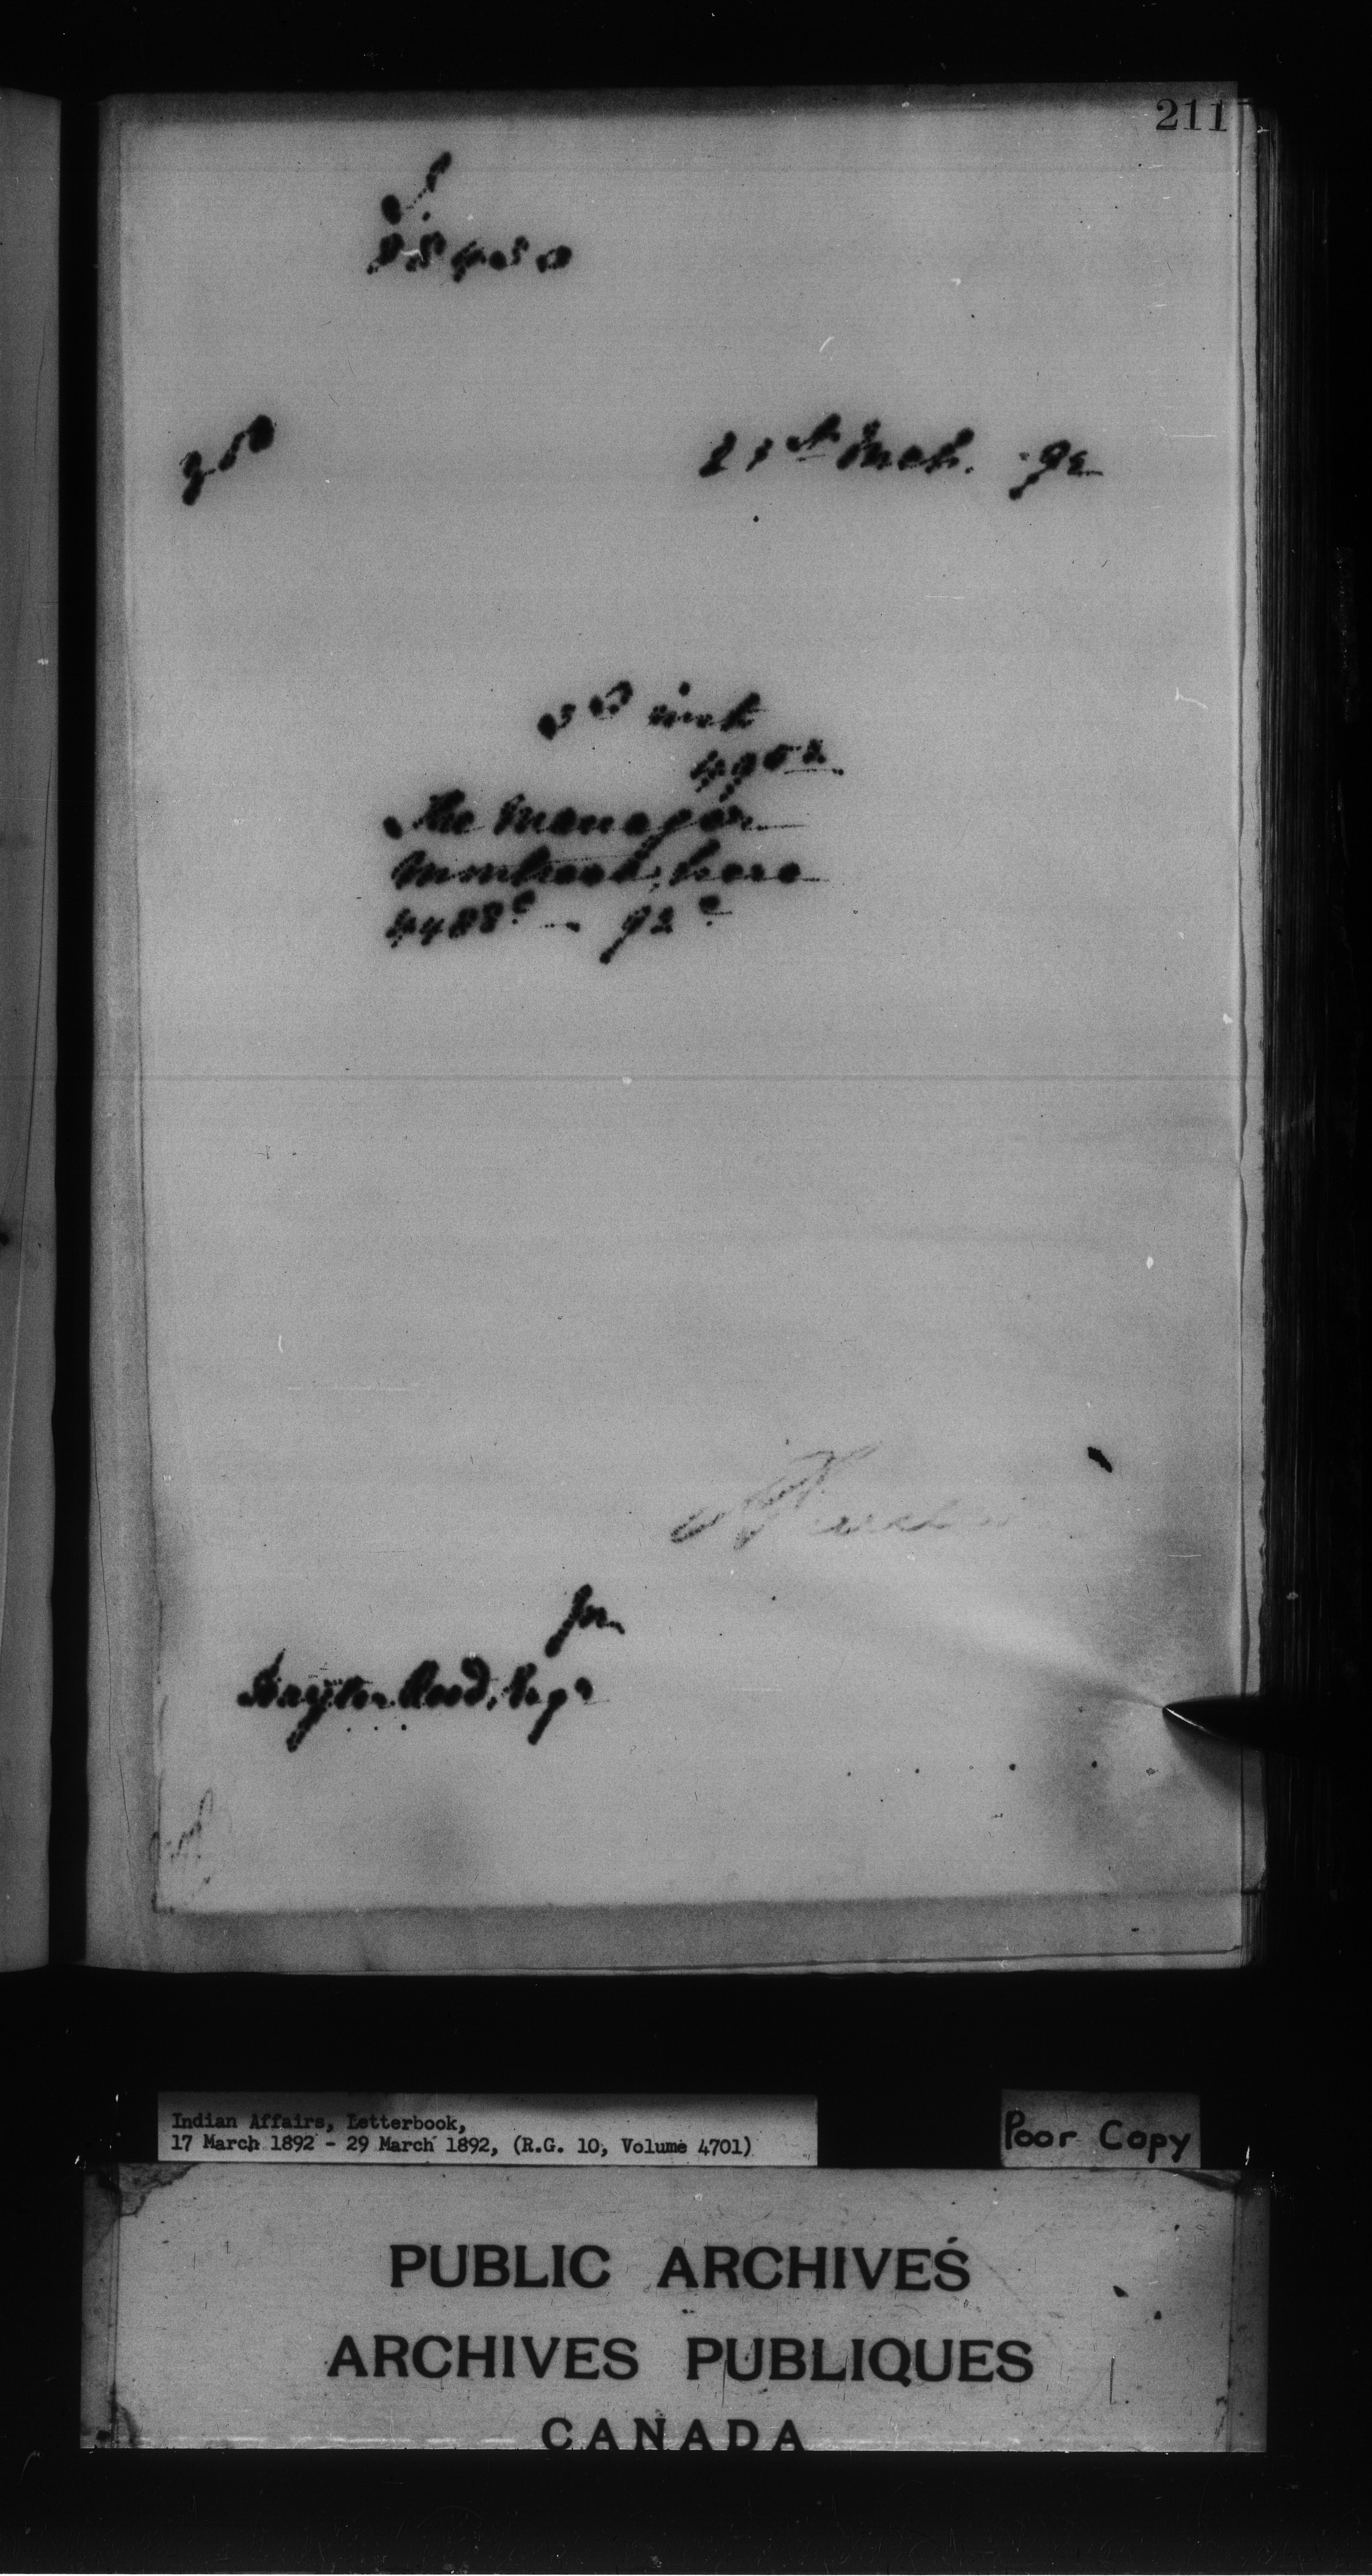 211
21st Mch. 92
3d inst
4952
The Manager
Montreal, here
4488
92
for
Hayter Reed, Esqr
Indian Affairs, Letterbook,
17 March 1892 - 29 March 1892, (R.G. 10, Volume 4701)
Poor Copy
PUBLIC ARCHIVES
ARCHIVES PUBLIQUES
CANADA